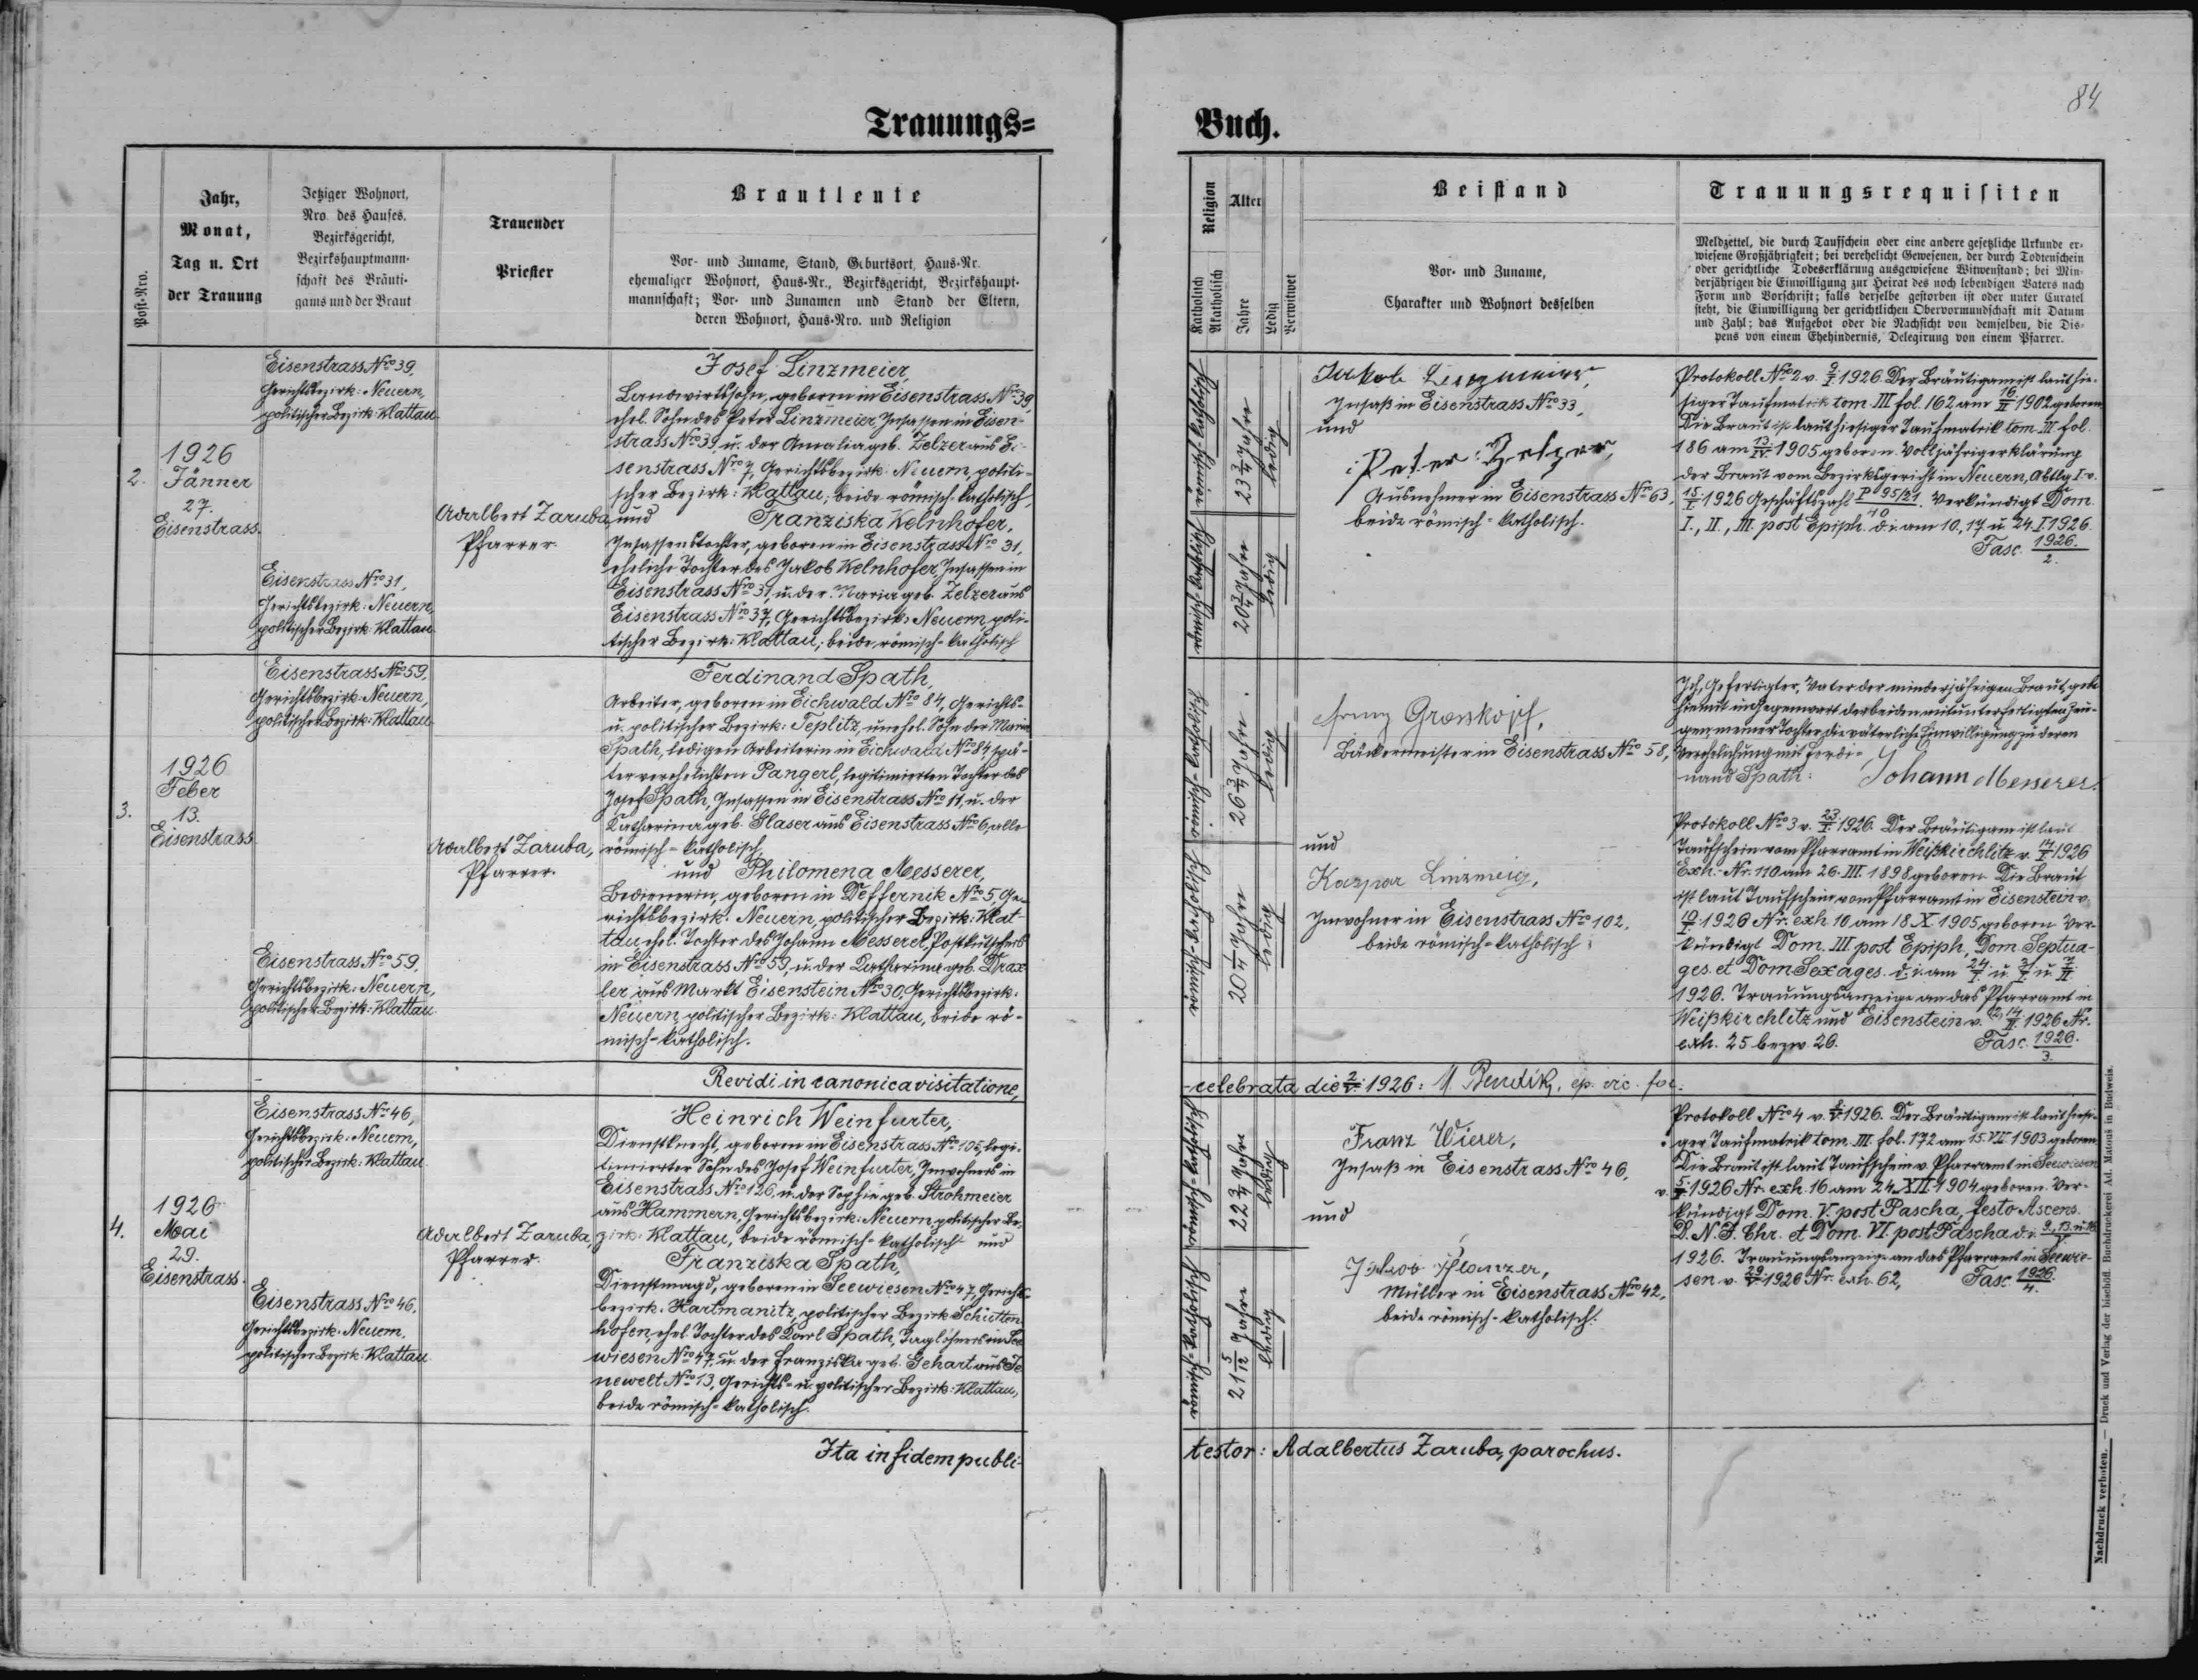 84
Trauungs=
Buch.
Post-Nro.
Jahr,
Monat,
Tag u. Ort
der Trauung
Jetziger Wohnort,
Nro des Hauses,
Bezirksgericht,
Bezirkshauptmann-
schaft des Bräuti-
gams und der Braut
Trauender
Priester
Brautleute
Vor- und Zuname, Stand, Geburtsort, Haus-Nr.
ehemaliger Wohnort, Haus-Nr., Bezirksgericht, Bezirkshaupt-
mannschaft; Vor- und Zunamen und Stand der Eltern,
deren Wohnort, Haus-Nro. und Religion
Religion
Katholisch
Akatholisch
Alter
Jahre
Ledig
Verwitwet
Beistand
Vor- und Zuname,
Charakter und Wohnort desselben
Trauungsrequisiten
Meldzettel, die durch Taufschein oder eine andere gesetzliche Urkunde er-
wiesene Großjährigkeit; bei verehelicht Gewesenen, der durch Todtenschein
oder gerichtliche Todeserklärung ausgewiesene Witwenstand; bei Min-
derjährigen die Einwilligung zur Heirat des noch lebendigen Vaters nach
Form und Vorschrift; falls derselbe gestorben ist oder unter Curatel
steht, die Einwilligung der gerichtlichen Obervormundschaft mit Datum
und Zahl; das Aufgebot oder die Nachsicht von demselben, die Dis-
pens von einem Ehehindernis, Delegirung von einem Pfarrer.
2.
1926
Jänner
27.
Eisenstrass.
Eisenstrass Nro 39,
Gerichtsbezirk: Neuern,
politischer Bezirk: Klattau.
Eisenstrass Nro 31,
Gerichtsbezirk: Neuern,
politischer Bezirk: Klattau.
Adalbert Zaruba,
Pfarrer.
Josef Linzmeier,
Landwirtssohn, geboren in Eisenstrass Nro 39,
ehel. Sohn des Peter Linzmeier, Insassen in Eisen-
strass Nro 39, u. der Amalia geb. Zelzer aus Ei-
senstrass Nro 7, Gerichtsbezirk: Neuern, politi-
scher Bezirk: Klattau; beide römisch-katholisch,
und Franziska Kelnhofer,
Insassenstochter, geboren in Eisenstrass Nro 31,
eheliche Tochter des Jakob Kelnhofer, Insassen in
Eisenstrass Nro 31, u. der Maria geb. Zelzer aus
Eisenstrass Nro 37, Gerichtsbezirk: Neuern, poli-
tischer Bezirk: Klattau; beide römisch-katholisch
römisch-katholisch
23 3/4 Jahre
ledig
römisch-katholisch
20 3/4 Jahre
ledig
Jakob Linzmeier,
Insaß in Eisenstrass Nro 33,
und
Peter Zelzer,
Ausnehmer in Eisenstrass Nro 63,
beide römisch-katholisch.
Protokoll Nro 2 v. 9/I. 1926. Der Bräutigam ist laut hie-
siger Taufmatrik tom. III fol. 162 am 16/II 1902 geboren.
Die Braut ist laut hiesiger Taufmatrik tom. III fol.
186 am 13/IV 1905 geboren. Volljährigerklärung
der Braut vom Bezirksgericht in Neuern, Abtlg I v.
15/I 1926 Geschäftszahl P 95/21/10. Verkündigt Dom.
I., II., III. post Epiph. d. i. am 10., 17. u. 24. I 1926.
Fasc. 1926./2.
3.
1926
Feber
13.
Eisenstrass
Eisenstrass Nro 59,
Gerichtsbezirk: Neuern,
politischer Bezirk: Klattau.
Eisenstrass Nro 59,
Gerichtsbezirk: Neuern,
politischer Bezirk: Klattau.
Adalbert Zaruba,
Pfarrer.
Ferdinand Spath,
Arbeiter, geboren in Eichwald Nro 84, Gerichts-
u. politischer Bezirk: Teplitz, unehel. Sohn der Maria
Spath, ledigen Arbeiterin in Eichwald Nro 84, spä-
ter verehelichten Pangerl, legitimierten Tochter des
Josef Spath, Insassen in Eisenstrass Nro 11, u. der
Katharina geb. Glaser aus Eisenstrass Nro 6, alle
römisch-katholisch,
und Philomena Messerer,
Bedienerin, geboren in Deffernik Nro 5, Ge-
richtsbezirk: Neuern, politischer Bezirk: Klat-
tau, ehel. Tochter des Johann Messerer, Postkutschers
in Eisenstrass Nro 59, u. der Katharina geb. Drax-
ler aus Markt Eisenstein Nro 30, Gerichtsbezirk:
Neuern, politischer Bezirk: Klattau, beide rö-
misch-katholisch.
römisch-katholisch
26 3/4 Jahre
ledig
römisch-katholisch
20 1/4 Jahre
ledig
Franz Grosskopf,
Bäckermeister in Eisenstrass Nro 58,
und
Kaspar Linzmeig,
Inwohner in Eisenstrass Nro 102,
beide römisch-katholisch
Ich, Gefertigter, Vater der minderjährigen Braut, gebe
hiemit in Gegenwart der beiden mitunterfertigten Zeu-
gen meiner Tochter die väterliche Einwilligung zu deren
Verehelichung mit Ferdi-
nand Spath: Johann Messerer.
Protokoll Nro 3 v. 23/I. 1926. Der Bräutigam ist laut
Taufschein vom Pfarramt in Weißkirchlitz v. 14/I 1926
Exh. Nr. 110 am 26. III. 1898 geboren. Die Braut
ist laut Taufschein vom Pfarramt in Eisenstein v.
10/I. 1926 Nr. exh. 10 am 18. X. 1905 geboren. Ver-
kündigt Dom. III. post Epiph., Dom. Septua-
ges. et Dom Sexages. d. i. am 24/I u. 31/I u. 7/II
1926. Trauungsanzeige an das Pfarramt in
Weißkirchlitz und Eisenstein v. 14/II. 1926 Nr.
exh. 25 bezw. 26. Fasc. 1926./3.
Revidi in canonica visitatione,
celebrata die 2/V. 1926: ep. vic. for.
4.
1926
Mai
29.
Eisenstrass.
Eisenstrass Nro 46,
Gerichtsbezirk: Neuern,
politischer Bezirk: Klattau.
Eisenstrass Nro 46,
Gerichtsbezirk: Neuern,
politischer Bezirk: Klattau
Adalbert Zaruba,
Pfarrer.
Heinrich Weinfurter,
Dienstknecht, geboren in Eisenstrass Nro 105, legi-
timierter Sohn des Josef Weinfurter, Inwohners in
Eisenstrass Nro 126, u. der Sophie geb. Strohmeier
aus Hammern, Gerichtsbezirk: Neuern, politischer Be-
zirk: Klattau, beide römisch-katholisch und
Franziska Spath,
Dienstmagd, geboren in Seewiesen Nro 47, Gerichts-
bezirk: Hartmanitz, politischer Bezirk Schütten-
hofen, ehel. Tochter des Karl Spath, Taglöhners in See-
wiesen Nro 47, u. der Franziska geb. Gehart aus Je-
newelt Nro 13, Gerichts- u. politischer Bezirk: Klattau,
beide römisch-katholisch.
römisch-katholisch
22 3/4 Jahre
ledig
römisch-katholisch
21 5/12 Jahre
ledig
Franz Wierer,
Insaß in Eisenstrass Nro 46,
und
Jakob Pfanzer,
Müller in Eisenstrass Nro 42,
beide römisch-katholisch.
Protokoll Nro 4 v. 1926. Der Bräutigam ist laut hiesi-
ger Taufmatrik tom. III. fol. 172 am 15. VII 1903 geboren.
Die Braut ist laut Taufschein v. Pfarramt in Seewiesen
v. 1926 Nr. exh. 16 am 24. XII. 1904 geboren. Ver-
kündigt Dom. V. post Pascha, festo Ascens.
D. N. J. Chr. et Dom. VI. post Pascha d. i. 9., 13. u. 16./V.
1926. Trauungsanzeige an das Pfarramt in Seewie-
sen v. 29/V. 1926 Nr. exh. 62, Fasc. 1926./4.
Ita in fidem publi-
testor: Adalbertus Zaruba, parochus.
Nachdruck verboten. — Druck und Verlag der bischöfl. Buchdruckerei Ad. Matouš in Budweis.